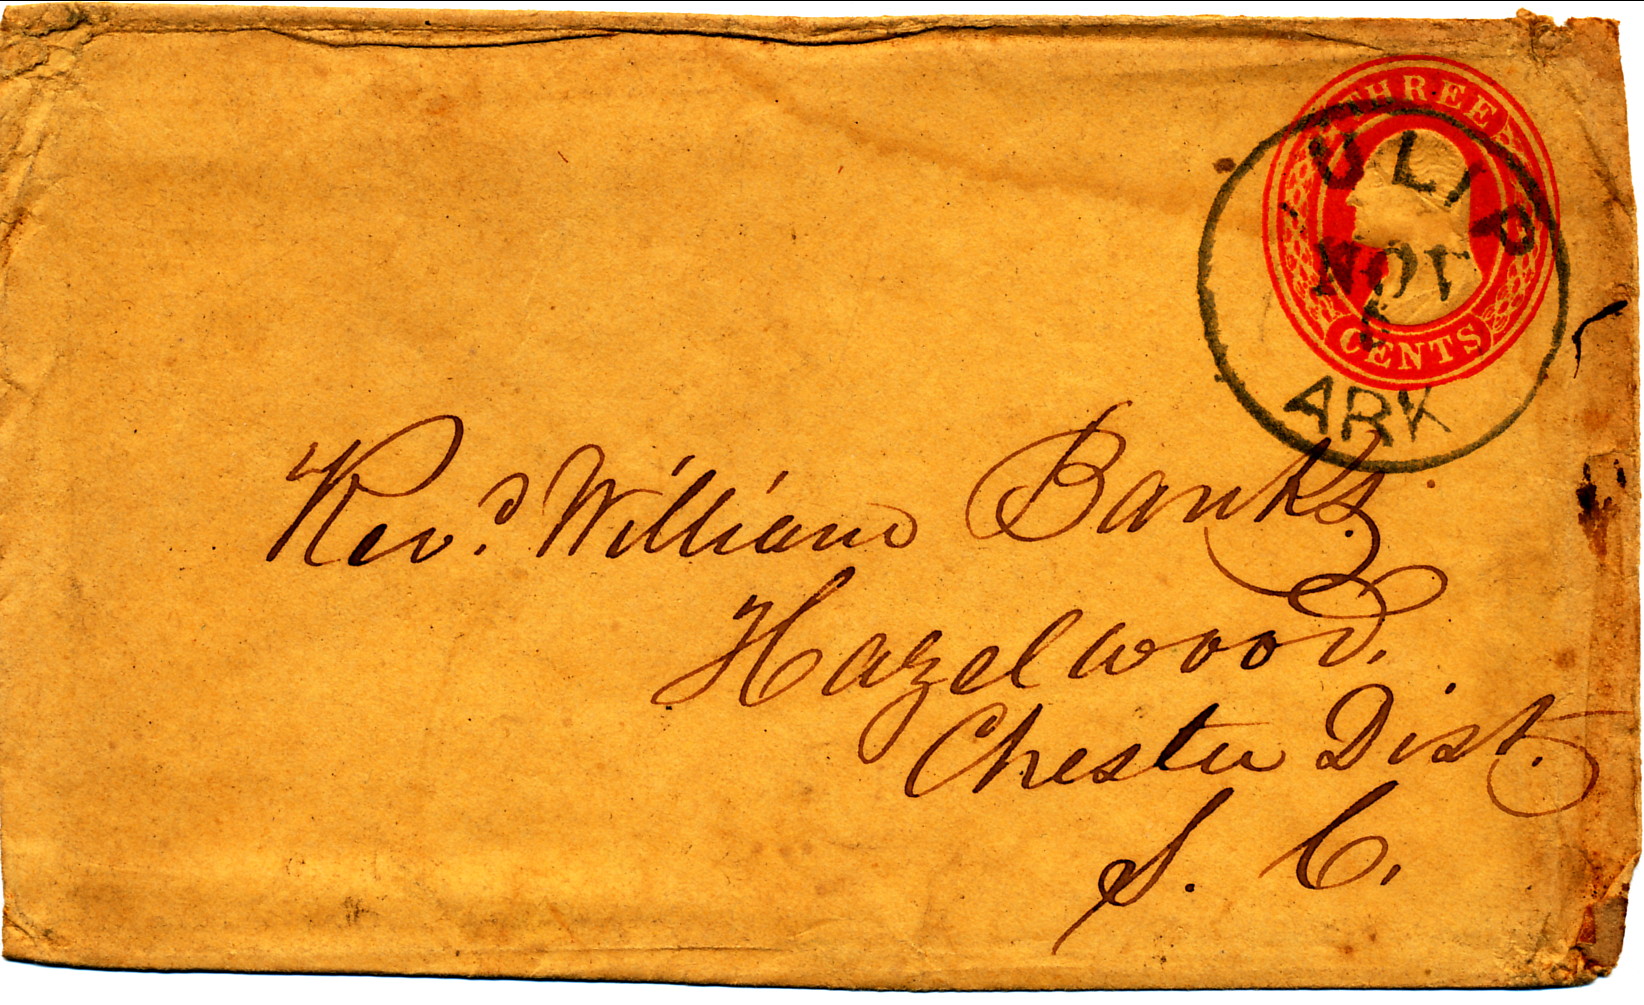 THREE
ULIP
NOV
CENTS
ARK
Rev.d William Banks.
Hazelwood,
Chester Dist.
S. C.